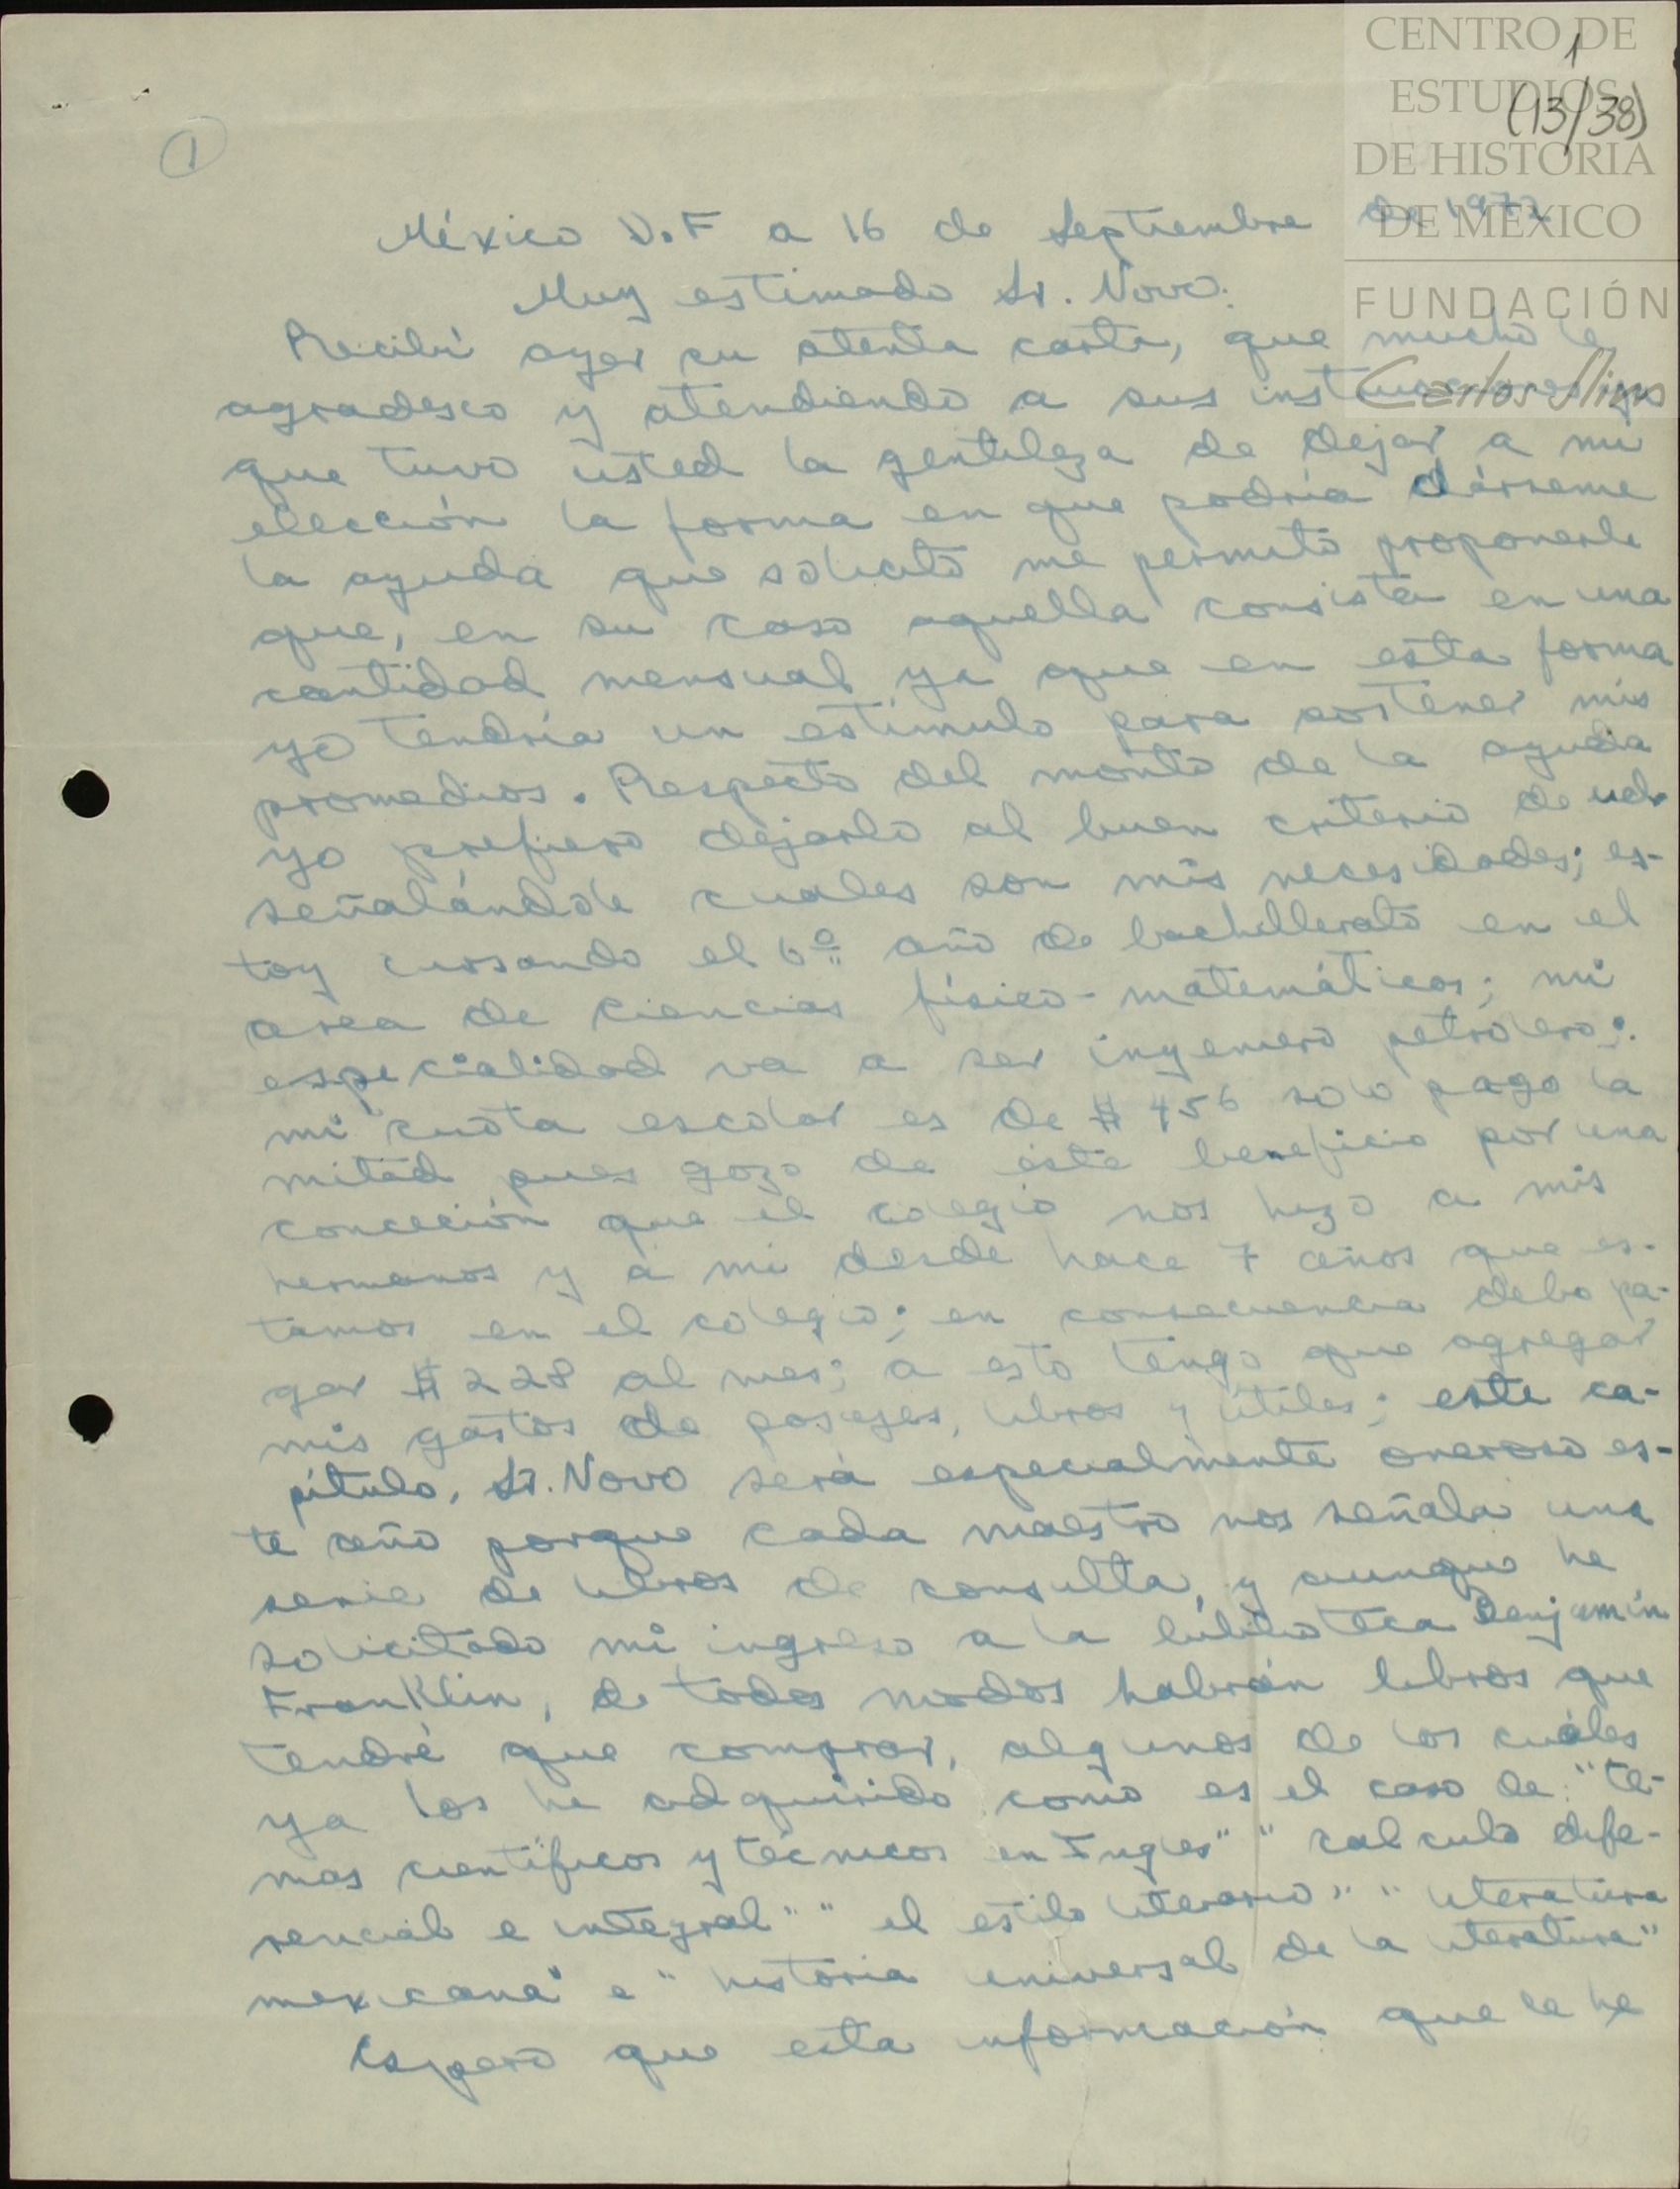 CENTRO DE
ESTUDIOS
DE HISTORIA
DE MÉXICO
FUNDACIÓN
Carlos Slim
1
(13/38)
1
México D.F a 16 de Septiembre de 1972
Muy estimado Sr. Novo:
Recibí ayer su atenta carta, que mucho le
agradesco y atendiendo a sus instrucciones
que tuvo usted la gentileza de dejar a mi
elección la forma en que podría dárseme
la ayuda que solicito me permito proponerle
que, en su caso aquella consista en una
cantidad mensual ya que en esta forma
yo tendría un estímulo para sostener mis
promedios. Respecto del monto de la ayuda
yo prefiero dejarlo al buen criterio de ud.
señalándole cuales son mis necesidades; es-
toy cursando el 6º año de bachillerato en el
area de ciencias físico-matemáticas; mi
especialidad va a ser ingeniero petrolero;
mi cuota escolar es de $ 456 solo pago la
mitad pues gozo de éste beneficio por una
conceción que el colegio nos hizo a mis
hermanos y a mi desde hace 7 años que es-
tamos en el colegio; en consecuencia debo pa-
gar $ 228 al mes; a esto tengo que agregar
mis gastos de pasajes, libros y útiles; este ca-
pítulo, Sr. Novo será especialmente oneroso es-
te año porque cada maestro nos señala una
serie de libros de consulta, y aunque he
solicitado mi ingreso a la biblioteca Benjamín
Franklin, de todos modos habrán libros que
tendré que comprar, algunos de los cuáles
ya los he adquirido como es el caso de "te-
mas científicos y técnicos en Ingles" "calculo dife-
rencial e integral" "el estilo literario" "literatura
mexicana" e "historia universal de la literatura"
Espero que esta información que le he